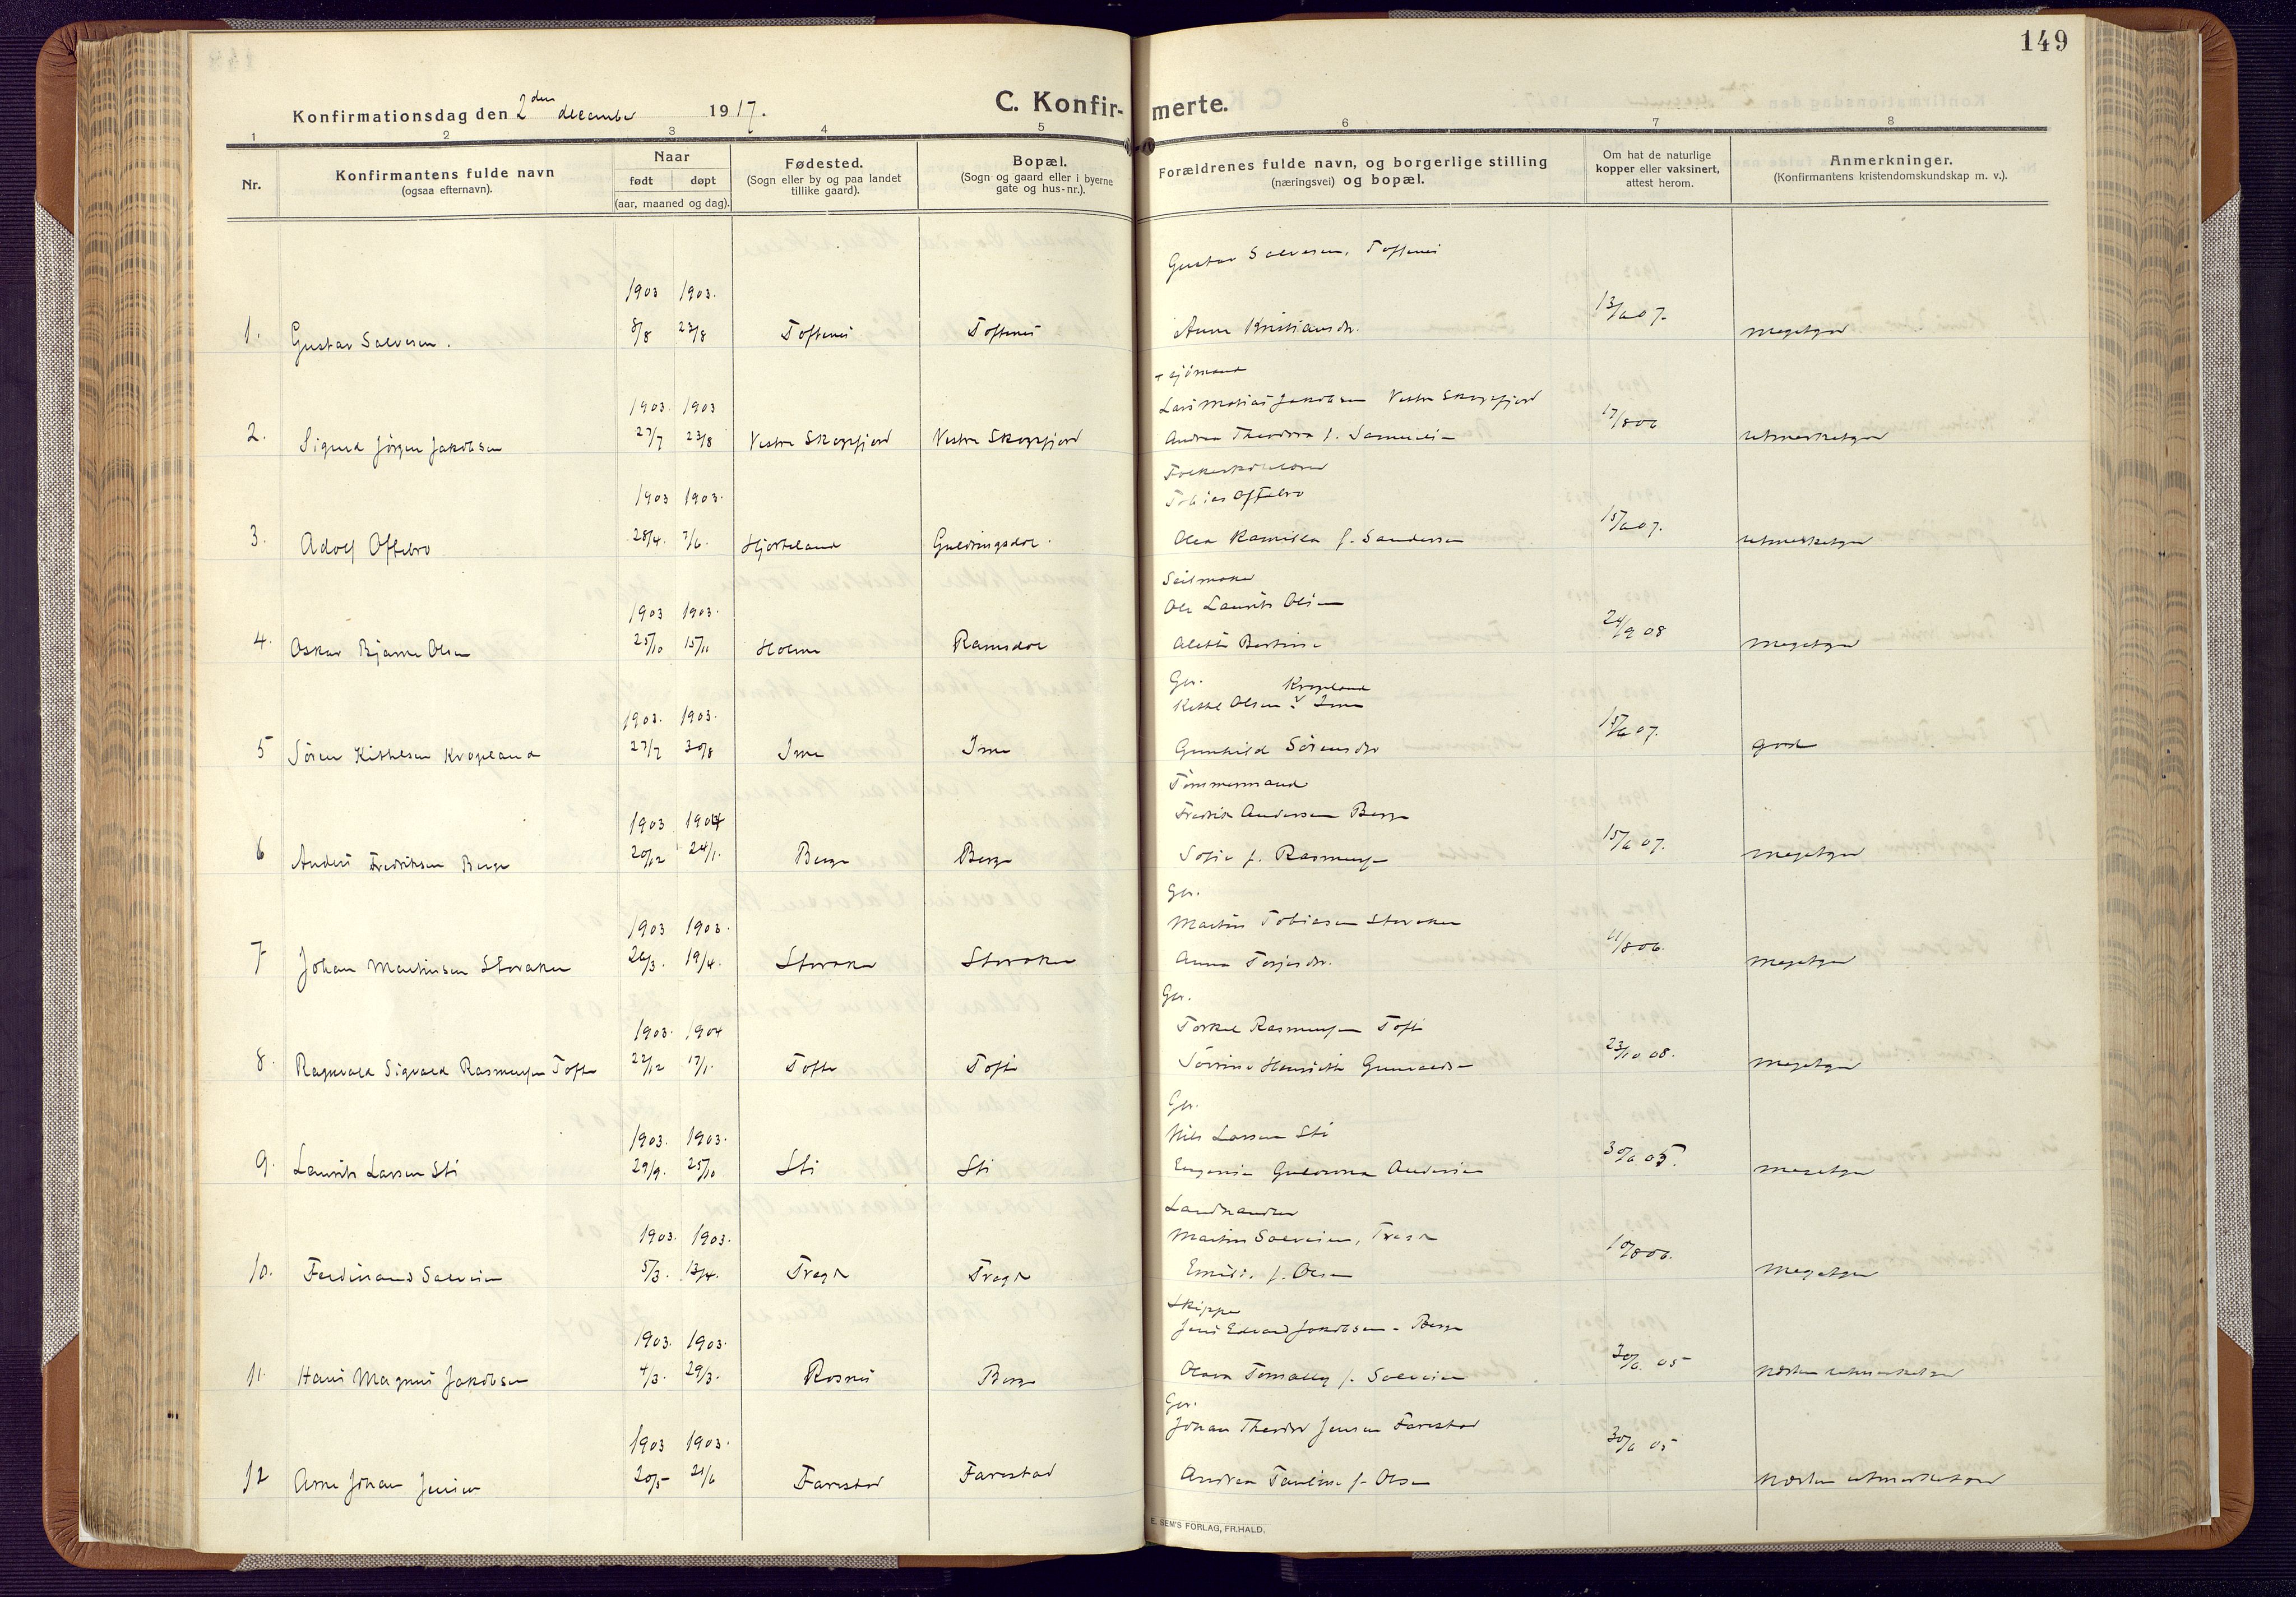 149
Konfirmationsdag den 2den december 1917.
C. Konfirmerte.
1 2 3 4 5 6 7 8
Nr.
Konfirmantens fulde navn
(ogsaa efternavn).
Naar
født døpt
(aar, maaned og dag).
Fødested.
(Sogn eller by og paa landet
tillike gaard).
Bopæl.
(Sogn og gaard eller i byerne
gate og hus-nr.).
Forældrenes fulde navn, og borgerlige stilling
(næringsvei) og bopæl.
Om hat de naturlige
kopper eller vaksinert,
attest herom.
Anmerkninger.
(Konfirmantens kristendomskundskap m. v.).
Gustav Salvesen, Toftenes
1903 1903.
1. Gustav Salvesen. 8/8 23/8 Toftenes Toftenes Anne Kristiansdr. 13/6 07. megetgod
Sjömand
1903 1903 Lars Matias Jakobsen Vestre Skogsfjord
2. Sigurd Jørgen Jakobsen 27/7 23/8 Vestre Skogsfjord Vestre Skogsfjord Andrea Theodora f. Samuelsen 17/8 06 utmerketgod
Folkeskolelærer
1903 1903. Tobias Oftebro
3. Adolf Oftebro 28/4. 7/6. Hjorteland Guldringsdal. Olea Kamilla f. Sandersen 15/6 07. utmerketgod
Seilmaker
1903 1903. Ole Laurits Olsen
4. Oskar Bjarne Olsen 25/10 15/11 Holme Ramsdal Alette Bertine 24/9 08 megetgod
Gbr. Krogeland
1903. 1903. Kittel Olsen Ime
5 Sören Kittelsen Krogeland 27/7 30/8 Ime Ime Gunhild Sörensdr 15/6 07. god
Tömmermand
1903 1904 Fredrik Andersen Berge
6 Anders Fredriksen Berge 20/12 24/1. Berge Berge Sofie f. Rasmussen 15/6 07. megetgod
Gbr.
1903 1903. Martin Tobiasen Storaker
7 Johan Martinsen Storaker 26/3. 19/4. Storaker Storaker Anna Torjesdr. 11/8 06. megetgod
Gbr.
1903. 1904 Torkel Rasmussen Tofte
8. Ragnvald Sigvald Rasmussen Tofte 22/12 17/1. Tofte Tofte Sörine Henriette Gunvaldsen 23/10 08. megetgod
Gbr.
1903. 1903. Nils Larsen Sti
9. Laurits Larsen Sti 29/9. 25/10 Sti Sti Eugenie Gulowna Andersen 30/6 05. megetgod
Landhandler
1903. 1903. Martin Salvesen, Tregde
10. Ferdinand Salvesen 5/3. 13/4. Tregde Tregde Emilie f. Olsen 10/8 06. megetgod
Skipper
1903. 1903. Jens Edvard Jakobsen. Berge
11. Hans Magnus Jakobsen 4/3. 29/3. Rosnes Berge Olava Tomally f. Salvesen 30/6. 05 næsten utmerketgod
Gbr.
1903 1903. Johan Theodor Jensen Farestad
12 Arne Johan Jensen 20/5 21/6 Farestad Farestad Andrea Tomine f. Olsen 30/6 05 næsten utmerketgod
E. SEM'S FORLAG, FR.HALD.